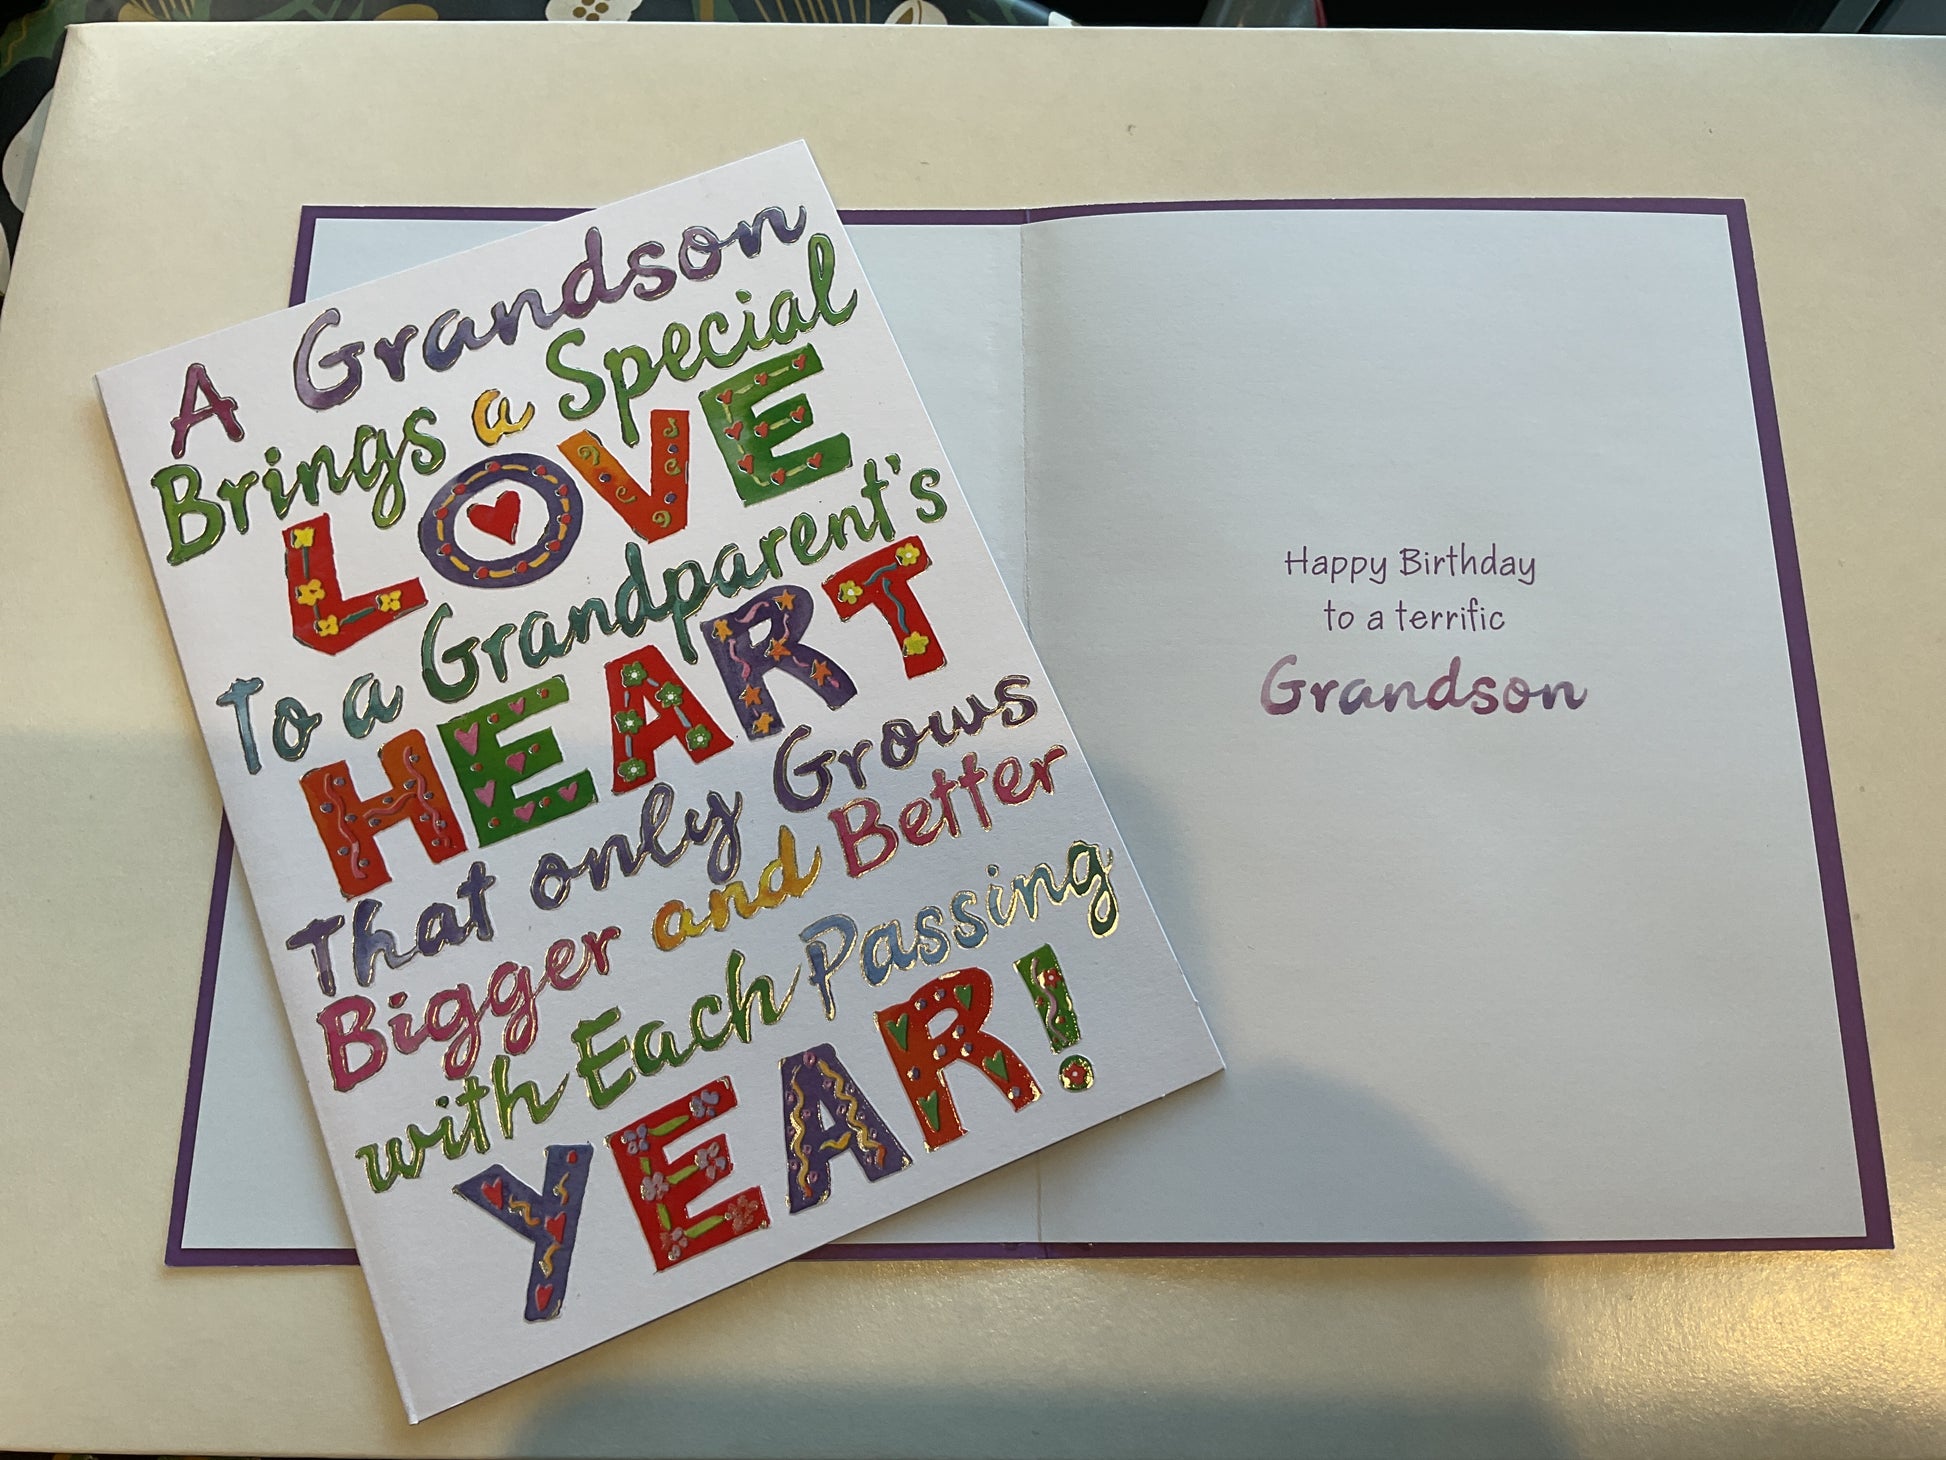 A Grandson
Brings a Special
LOVE
To a Grandparent's
HEART
That only Grows
Bigger and Better
with Each Passing
YEAR!
Happy Birthday
to a terrific
Grandson